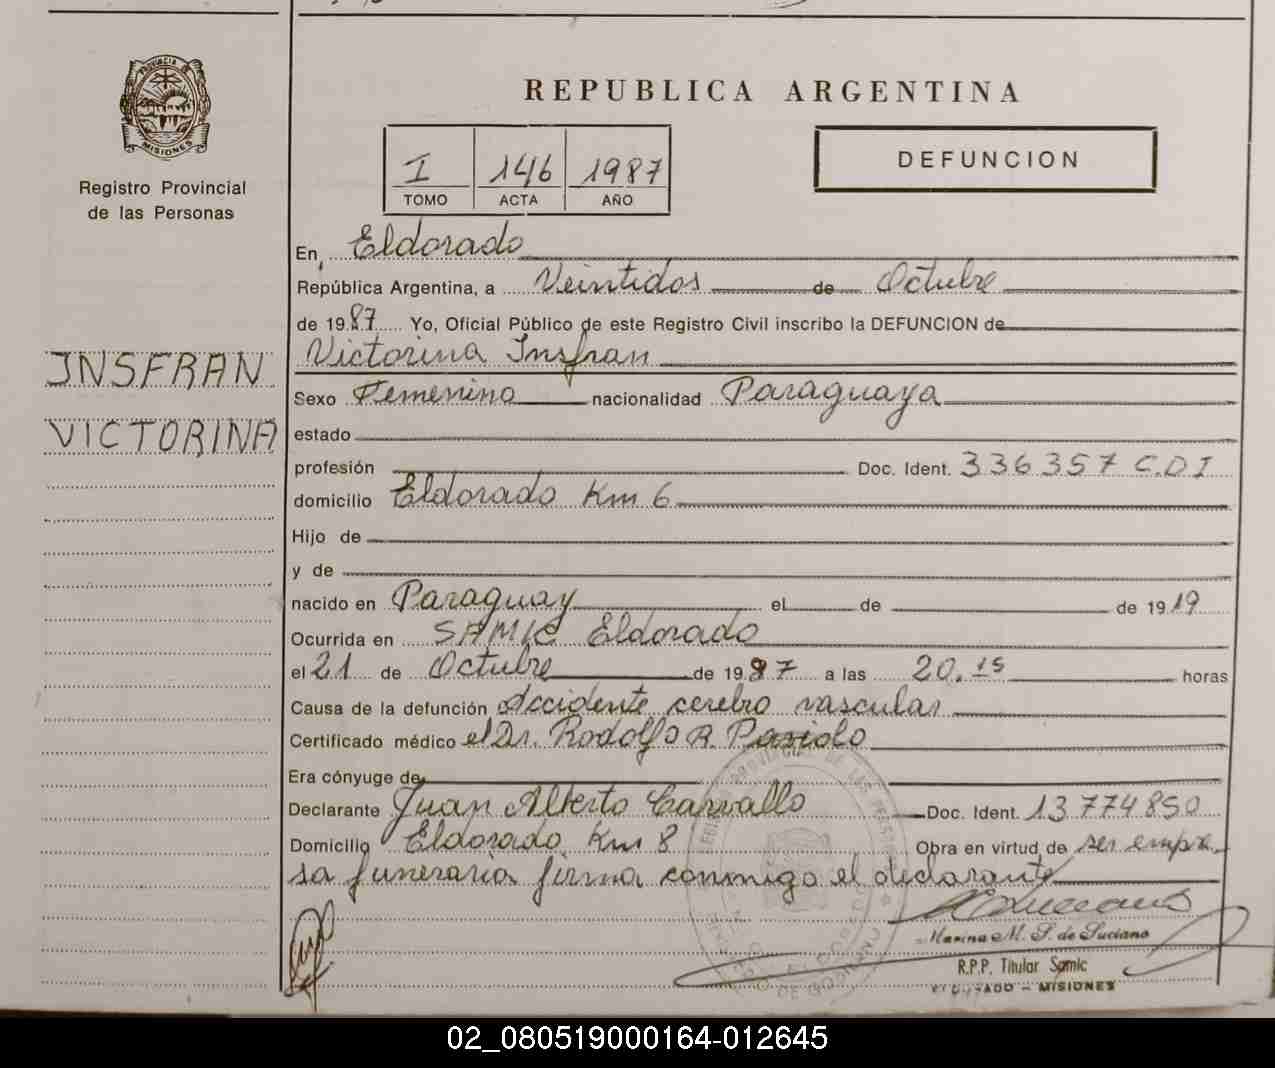 PROVINCIA DE
MISIONES
Registro Provincial
de las Personas
INSFRAN
VICTORINA
REPUBLICA ARGENTINA
I 146 1987
TOMO ACTA AÑO
DEFUNCION
En, Eldorado
República Argentina, a Veintidos de Octubre
de 1987 Yo, Oficial Público de este Registro Civil inscribo la DEFUNCION de
Victorina Insfran
Sexo Femenino nacionalidad Paraguaya
estado
profesión Doc. Ident. 336357 C.D I
domicilio Eldorado Km 6
Hijo de
y de
nacido en Paraguay el de de 1919
Ocurrida en SAMIC Eldorado
el 21 de Octubre de 1987 a las 20.15 horas
Causa de la defunción Accidente cerebro vascular
Certificado médico el Dr. Rodolfo R.
Era cónyuge de
Declarante Juan Alberto Carvallo Doc. Ident. 13 774 850
Domicilio Eldorado Km 8 Obra en virtud de ser empre
sa funeraria firma conmigo el declarante
Marina M. S. de Luciano
R.P.P. Titular Samic
ELDORADO - MISIONES
02_080519000164-012645